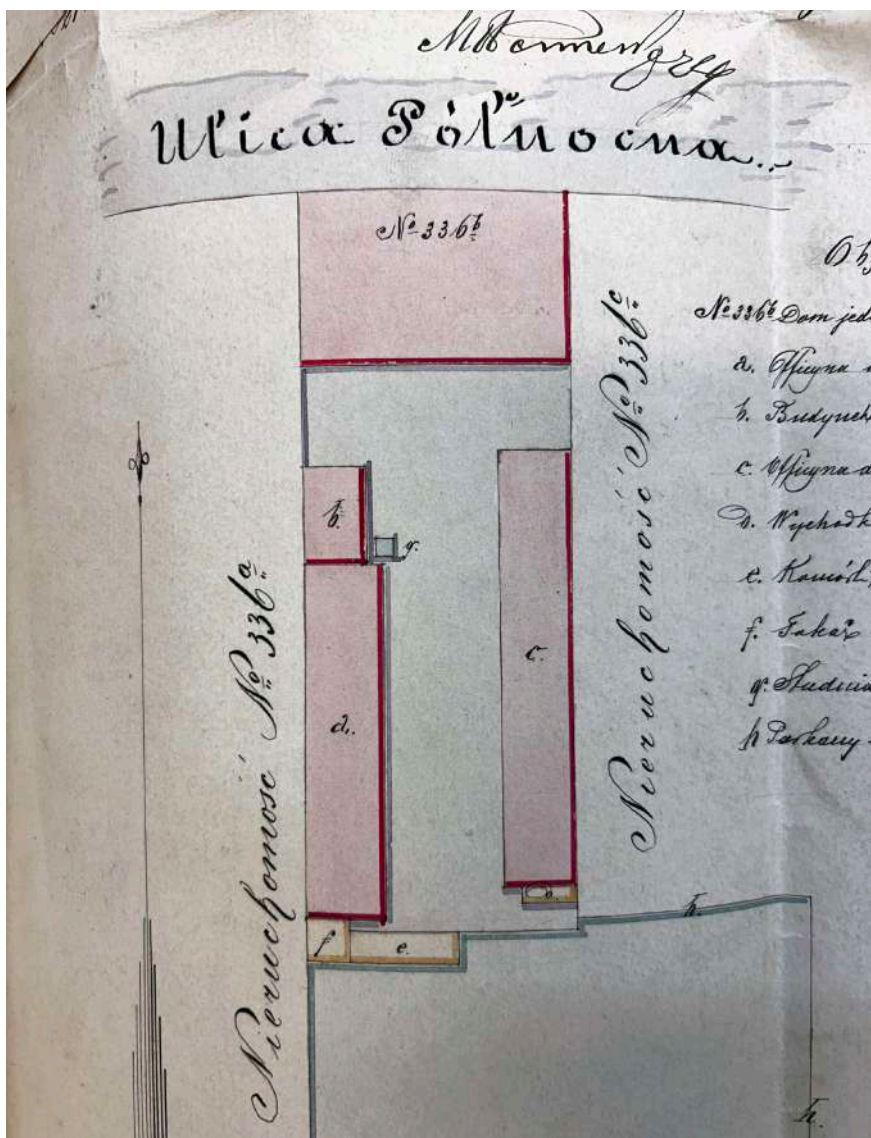 Ulica Północna
№ 336b
Nieruchomość № 336a
Nieruchomość № 336c
b.
g.
a.
c.
D.
f
e.
h.
h.
№ 336b Dom jed
a. Officyna
b. Budynek
c. Officyna
D. Wychodk
e. Komórk
f.
g. Studnia
h Parkany